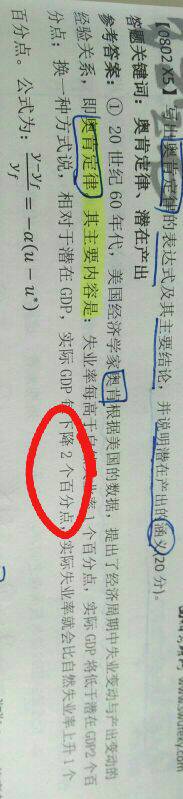 【0802 X5】写出奥肯定律的表达式及其主要结论，并说明潜在产出的涵义(20 分)。
答题关键词：奥肯定律、潜在产出
参考答案：① 20 世纪 60 年代，美国经济学家奥肯根据美国的数据，提出了经济周期中失业变动与产出变动的
经验关系，即奥肯定律。其主要内容是：失业率每高于自然失业率 1 个百分点，实际 GDP 将低于潜在 GDP2 个百
分点；换一种方式说，相对于潜在 GDP，实际 GDP 每下降 2 个百分点，实际失业率就会比自然失业率上升 1 个
百分点。公式为：(y-y_f)/y_f = -α(u-u*)